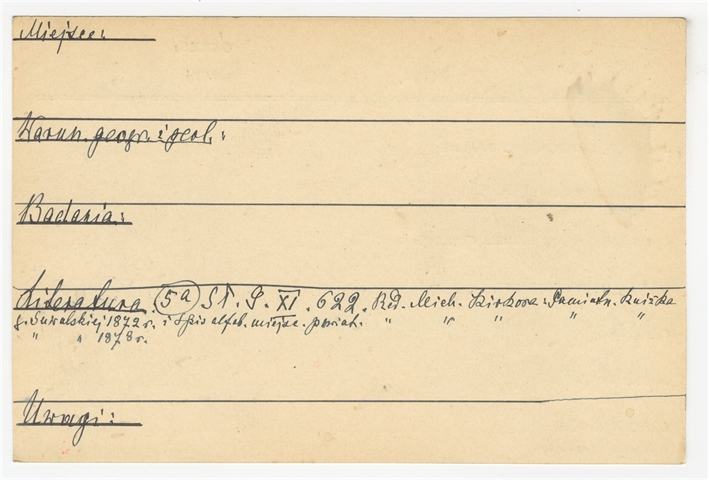 Miejsce:
Warun. geogr. i geol.:
Badania:
Literatura. 5a Sł. G. XI. 622. Red. Mich. Kirkora: Pamiatn. Kniżka
g. Suwalskiej 1872 r. i Spis alfab. miejsc. powiat. " " " " "
" " 1878 r.
Uwagi: